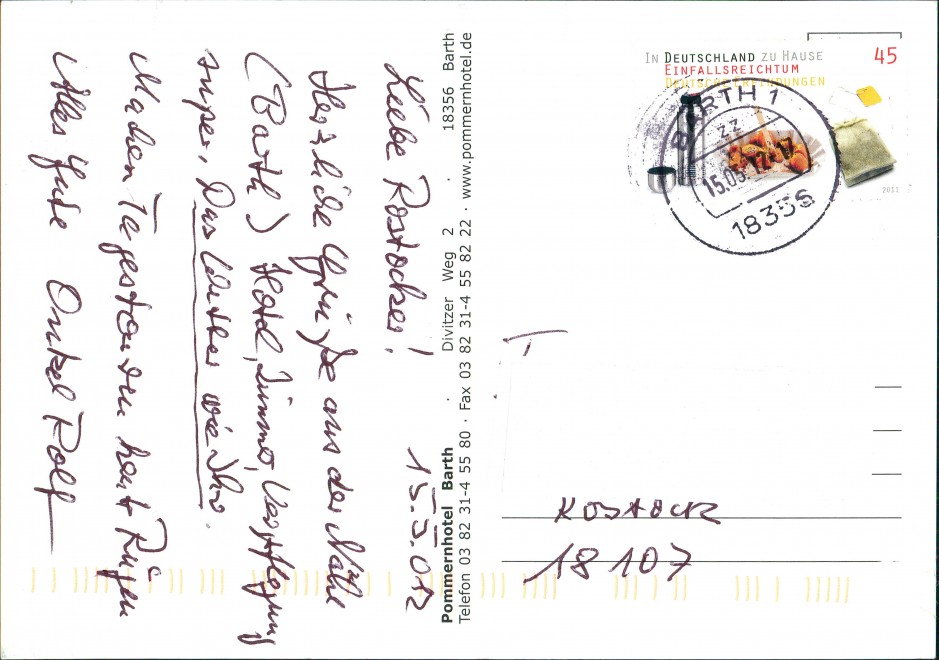 Liebe Rostocker!
15.5.012
Herzliche Grüße aus der Nähe
(Barth) Hotel, Zimmer, Verpflegung
super, Das Wetter wie Ihr.
Machen Tagestouren heut Rügen
Alles Gute Onkel Rolf
Pommernhotel Barth · Divitzer Weg 2 · 18356 Barth
Telefon 03 82 31-4 55 80 · Fax 03 82 31-4 55 82 22 · www.pommernhotel.de
IN DEUTSCHLAND ZU HAUSE
EINFALLSREICHTUM
DEUTSCHE ERFINDUNGEN
45
2011
BARTH 1
zz
15.05.12-17
18356
ROSTOCK
18107